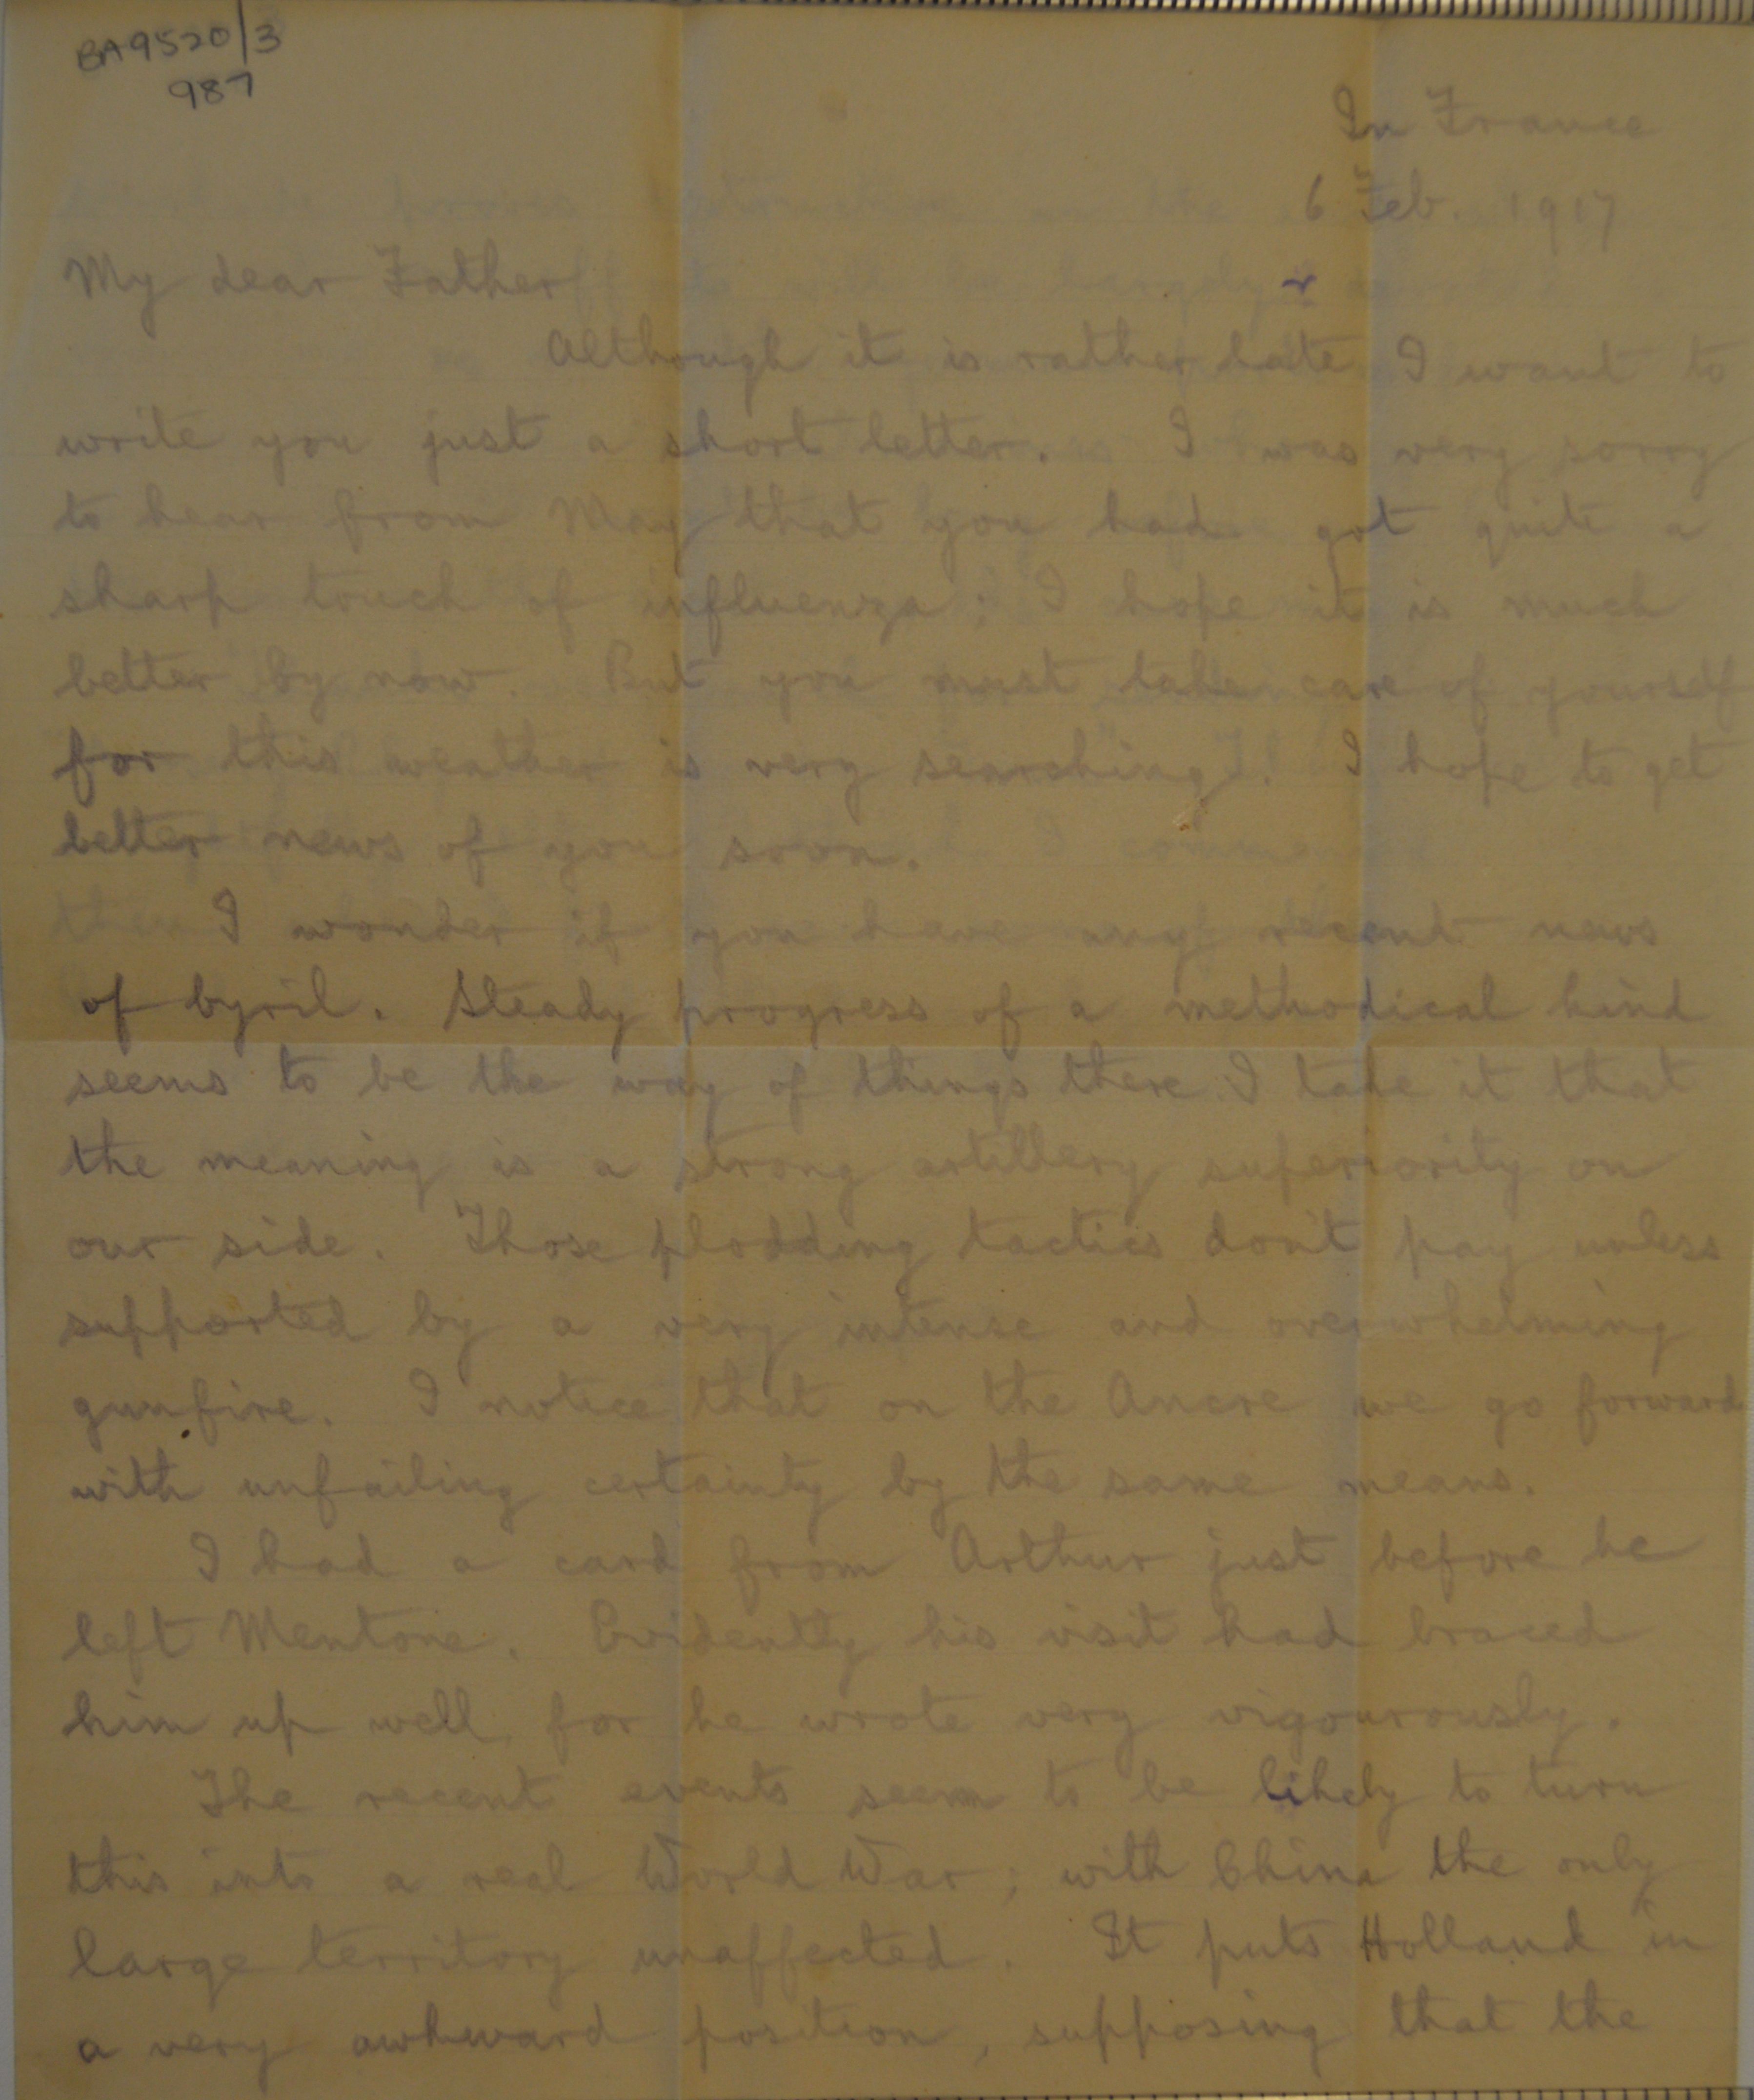 BA9520/3
987
In France
6 Feb. 1917
My dear Father
Although it is rather late I want to
write you just a short letter. I was very sorry
to hear from May that you had got quite a
sharp touch of influenza; I hope it is much
better by now. But you must take care of yourself
for this weather is very searching. I hope to get
better news of you soon.
I wonder if you have any recent news
of Cyril. Steady progress of a methodical kind
seems to be the way of things there. I take it that
the meaning is a strong artillery superiority on
our side. Those plodding tactics don't pay unless
supported by a very intense and overwhelming
gunfire. I notice that on the Ancre we go forward
with unfailing certainty by the same means.
I had a card from Arthur just before he
left Mentone. Evidently his visit had braced
him up well, for he wrote very vigourously.
The recent events seem to be likely to turn
this into a real World War; with China the only
large territory unaffected. It puts Holland in
a very awkward position, supposing that the